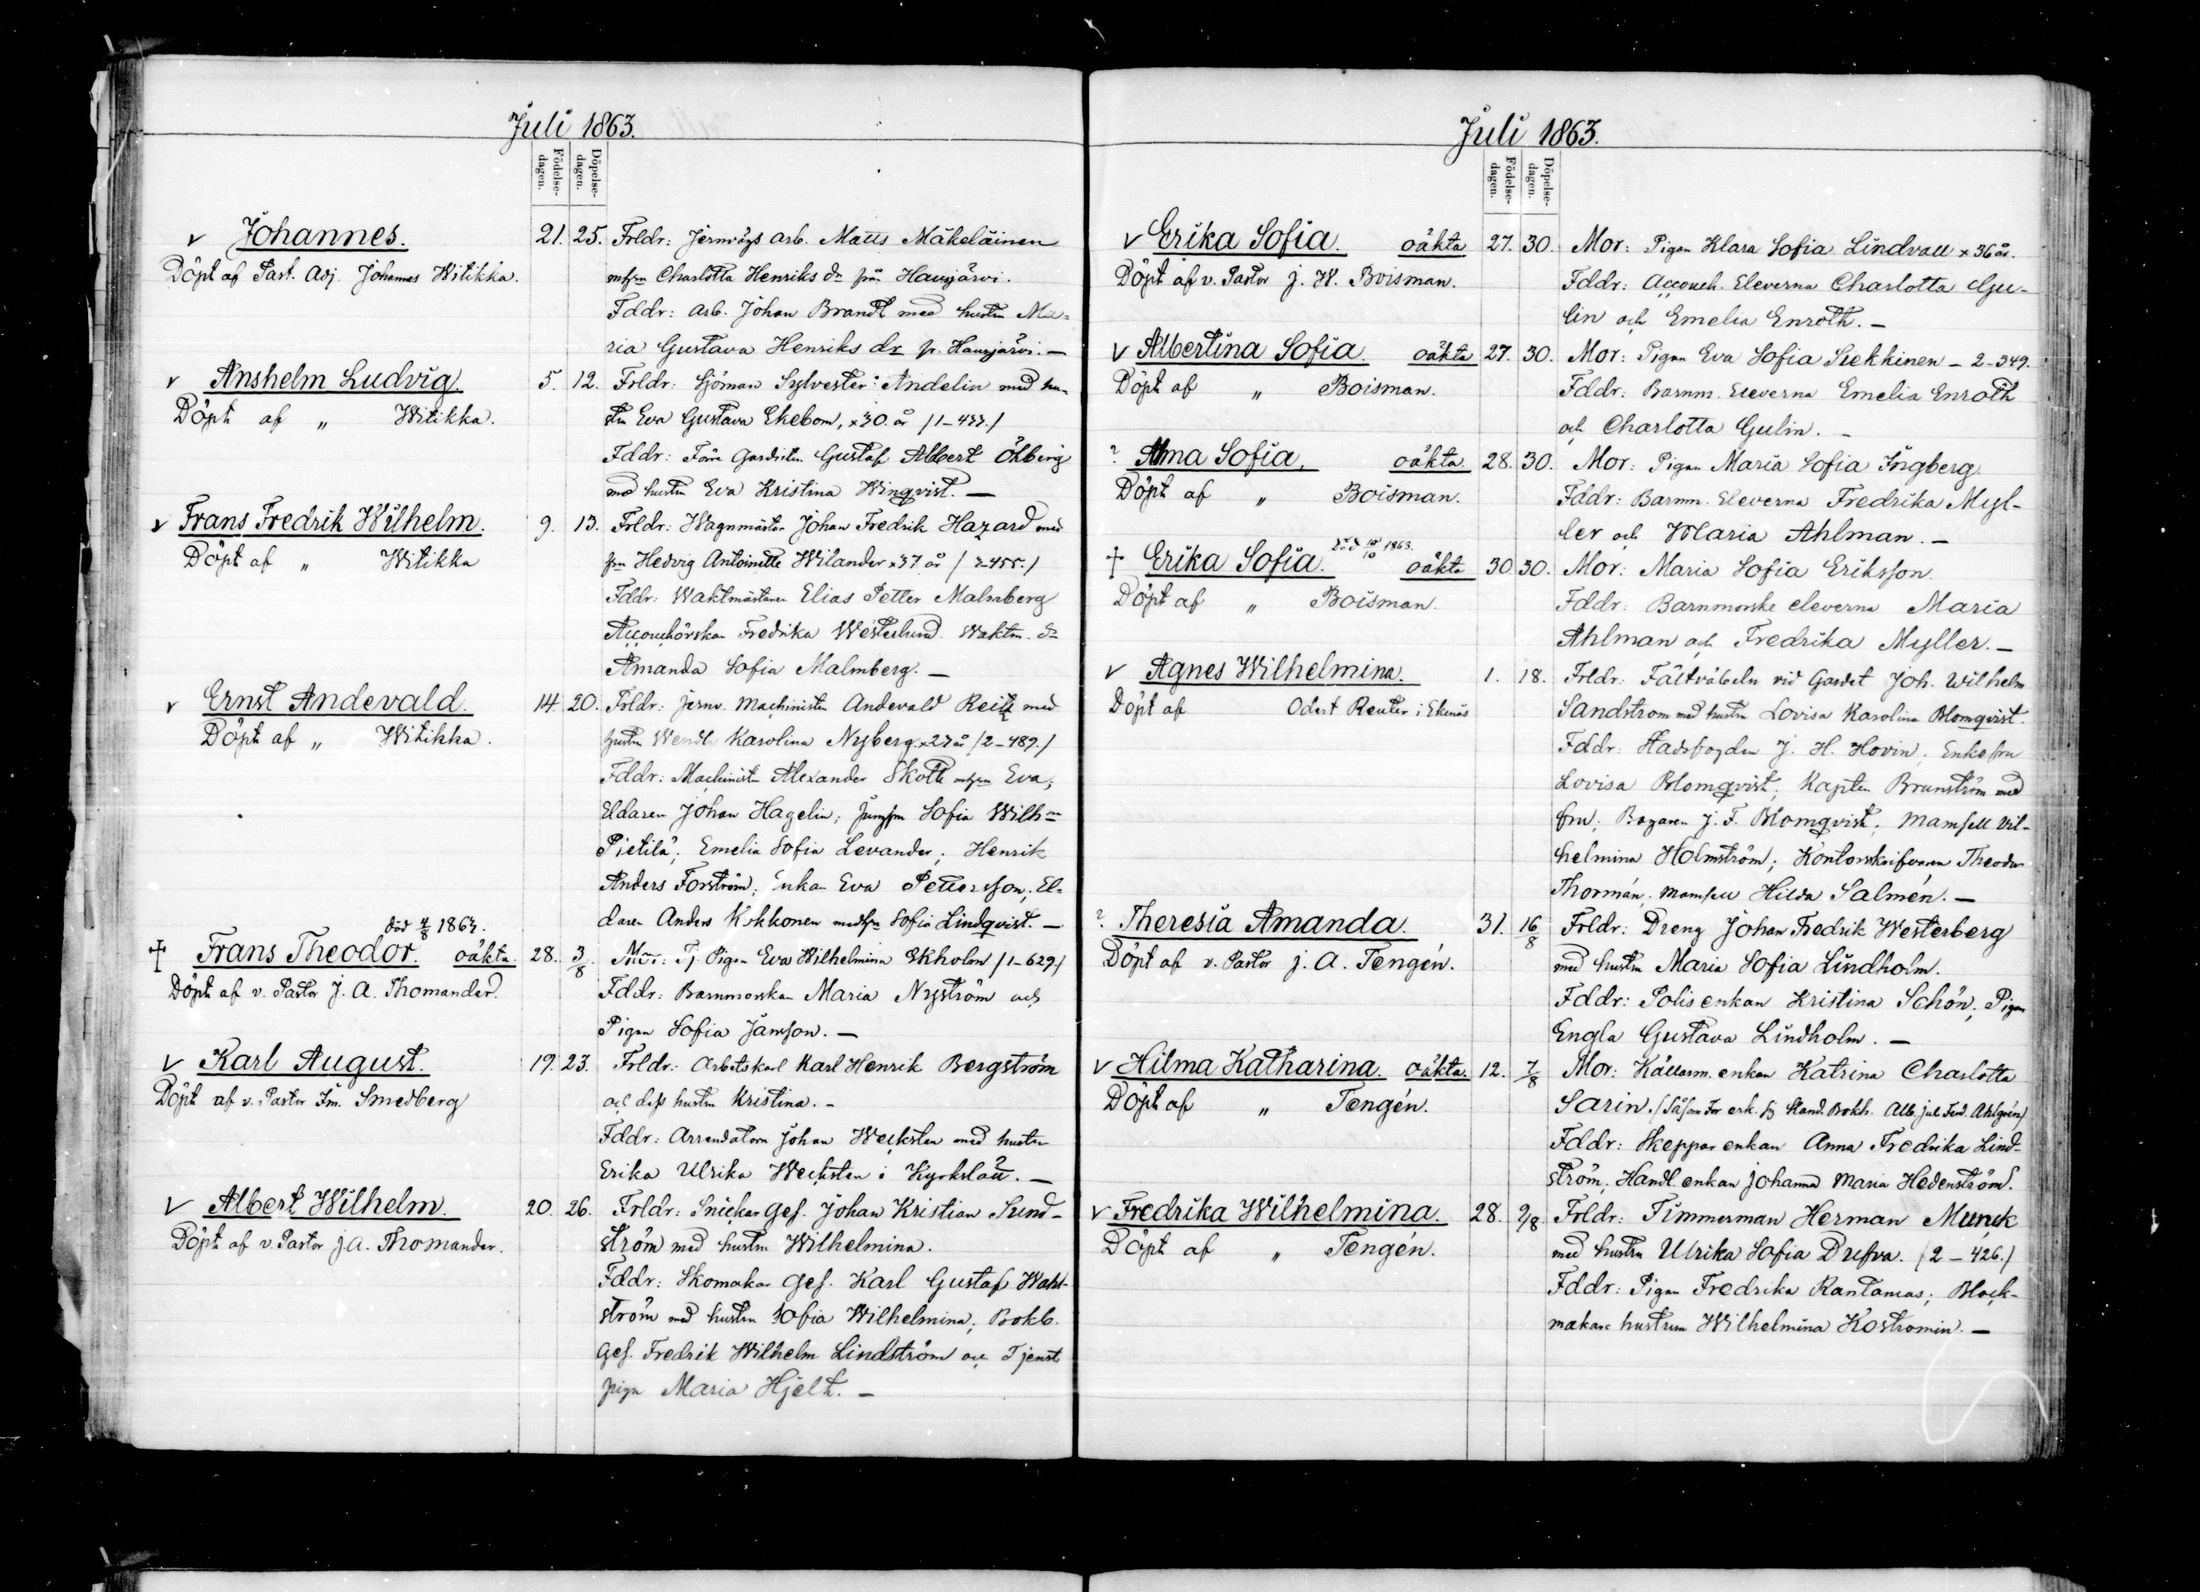 Juli 1863.
Födelse-dagen.
Döpelse-dagen.
v Johannes. 21. 25. Frldr: Jernvägs arb. Matts Mäkeläinen
Döpt af Past. Adj. Johannes Witikka. Charlotta Henriks dr från Hausjärvi.
Fddr: Arb. Johan Brandt med hustru Ma-
ria Gustava Henriks dr fr. Hausjärvi. —
v Anshelm Ludvig. 5. 12. Frldr: Sjöman Sylvester Andelin med hu-
Döpt af „ Witikka. stru Eva Gustava Ekebom, x 30 år /1-477./
Fddr: Förre Gardisten Gustaf Albert Öhberg
med hustru Eva Kristina Winqvist. —
v Frans Fredrik Wilhelm. 9. 13. Frldr: Wagnmästar Johan Fredrik Hazard med
Döpt af „ Witikka fru Hedvig Antoinette Wilander x 37 år /2-455./
Fddr: Waktmästaren Elias Petter Malmberg
Accouchörskan Fredrika Westerlund. Waktm. dr
Amanda Sofia Malmberg. —
v Ernst Andevald. 14. 20. Frldr: Jernv. Machinisten Andevald Reitz med
Döpt af „ Witikka. hustru Wendla Karolina Nyberg x 27 år /2-489./
Fddr: Machinisten Alexander Skott Eva;
Eldaren Johan Hagelin; Jungfru Sofia Wilhna
Pietilä; Emelia Sofia Levander; Henrik
Anders Forström; Enkan Eva Pettersson; El-
daren Anders Kokkonen med Sofia Lindqvist. —
död 4/8 1863.
† Frans Theodor. oäkta. 28. 3/8 Mor: Tj. Pigan Eva Wilhelmina Ekholm /1-629./
Döpt af v. Pastor J. A. Thomander. Fddr: Barnmorskan Maria Nyström och
Pigan Sofia Jansson. —
v Karl August. 19. 23. Frldr: Arbetskarl Karl Henrik Bergström
Döpt af v. Pastor Im. Smedberg och dess hustru Kristina. —
Fddr: Arrendatorn Johan Wecksten med hustru
Erika Ulrika Wecksten i Kyrkslätt. —
v Albert Wilhelm. 20. 26. Frldr: Snickar Ges. Johan Kristian Sund-
Döpt af v. Pastor J. A. Thomander. ström med hustru Wilhelmina.
Fddr: Skomakar Ges. Karl Gustaf Wahl-
ström med hustru Sofia Wilhelmina; Bokb.
Ges. Fredrik Wilhelm Lindström och Tjenst
pigan Maria Hjelt. —
Juli 1863.
Födelse-dagen.
Döpelse-dagen.
v Erika Sofia. oäkta 27. 30. Mor: Pigan Klara Sofia Lindvall x 36 år.
Döpt af v. Pastor J. W. Boisman. Fddr: Accouch. Eleverna Charlotta Gu-
lin och Emelia Enroth. —
v Albertina Sofia. oäkta 27. 30. Mor: Pigan Eva Sofia Siekkinen — 2-349.
Döpt af „ Boisman. Fddr: Barnm. Eleverna Emelia Enroth
och Charlotta Gulin. —
? Alma Sofia. oäkta. 28. 30. Mor: Pigan Maria Sofia Ingberg.
Döpt af „ Boisman. Fddr: Barnm. Eleverna Fredrika Myl-
ler och Maria Ahlman. —
Död 10/10 1863.
† Erika Sofia. oäkta 30. 30. Mor: Maria Sofia Eriksson.
Döpt af „ Boisman. Fddr: Barnmorske eleverna Maria
Ahlman och Fredrika Myller. —
v Agnes Wilhelmina. 1. 18. Frldr: Fältväbeln vid Gardet Joh. Wilhelm
Döpt af Odert Reuter i Ekenäs Sandström med hustru Lovisa Karolina Blomqvist.
Fddr: Stadsfogden J. H. Hovin; Enkefru
Lovisa Blomqvist; Kapten Brunström med
fru; Bagaren J. F. Blomqvist; Mamsell Vil-
helmina Holmström; Kontorskrifvaren Theodor
Thormán; Mamsell Hilda Salmén. —
? Theresia Amanda. 31. 16/8 Frldr: Dreng Johan Fredrik Westerberg
Döpt af v. Pastor J. A. Tengén. med hustru Maria Sofia Lindholm.
Fddr: Polis enkan Kristina Schön; Pigan
Engla Gustava Lindholm. —
v Hilma Katharina. oäkta. 12. 7/8 Mor: Källarm. enkan Katrina Charlotta
Döpt af „ Tengén. Sarin. /Såsom Far erk. sig Hand. Bokh. Alb. Jul. Ferd. Ahlgrén/
Fddr: Skeppar enkan Anna Fredrika Lind-
ström; Handl. enkan Johanna Maria Hedenström.
v Fredrika Wilhelmina. 28. 9/8. Frldr: Timmerman Herman Munck
Döpt af „ Tengén. med hustru Ulrika Sofia Drufva. /2-426./
Fddr: Pigan Fredrika Rantanas; Block-
makare hustrun Wilhelmina Kostromin. —